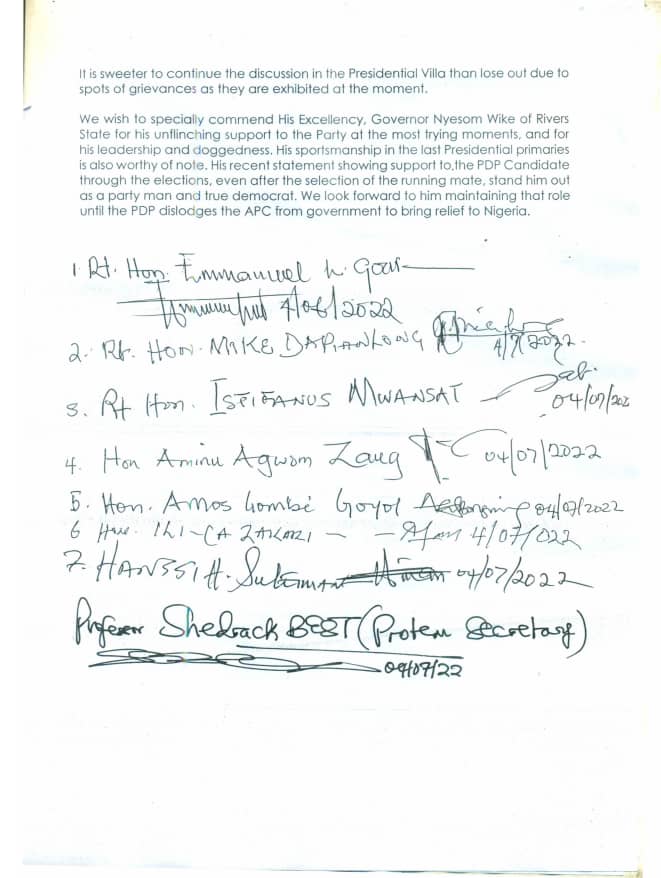 It is sweeter to continue the discussion in the Presidential Villa than lose out due to
spots of grievances as they are exhibited at the moment.
We wish to specially commend His Excellency, Governor Nyesom Wike of Rivers
State for his unflinching support to the Party at the most trying moments, and for
his leadership and doggedness. His sportsmanship in the last Presidential primaries
is also worthy of note. His recent statement showing support to,the PDP Candidate
through the elections, even after the selection of the running mate, stand him out
as a party man and true democrat. We look forward to him maintaining that role
until the PDP dislodges the APC from government to bring relief to Nigeria.
1. Rt. Hon. Emmanuel
2022
2. Rt. HON. MIKE DAPIANLONG 4/7/2022.
3. Rt Hon. MWANSAT 04/07/202
4. Hon Aminu Agwom Zang 04/07/2022
5. Hon. Amos Gombi Goyol 04/07/2022
6 Hon. 4/07/022
7. H. Suleiman 04/07/2022
Professor Shedrack BEST (Protem Secretary)
04/07/22